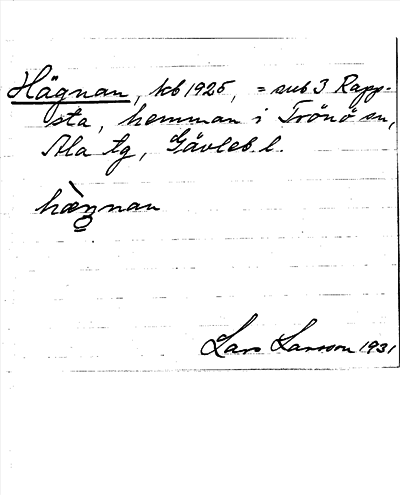 Hägnan, kb 1925, = sub 3 Rapp-
sta, hemman i Trönö sn,
Ala tg, Gävleb. l.
hæ̀nnan
Lars Larsson 1931